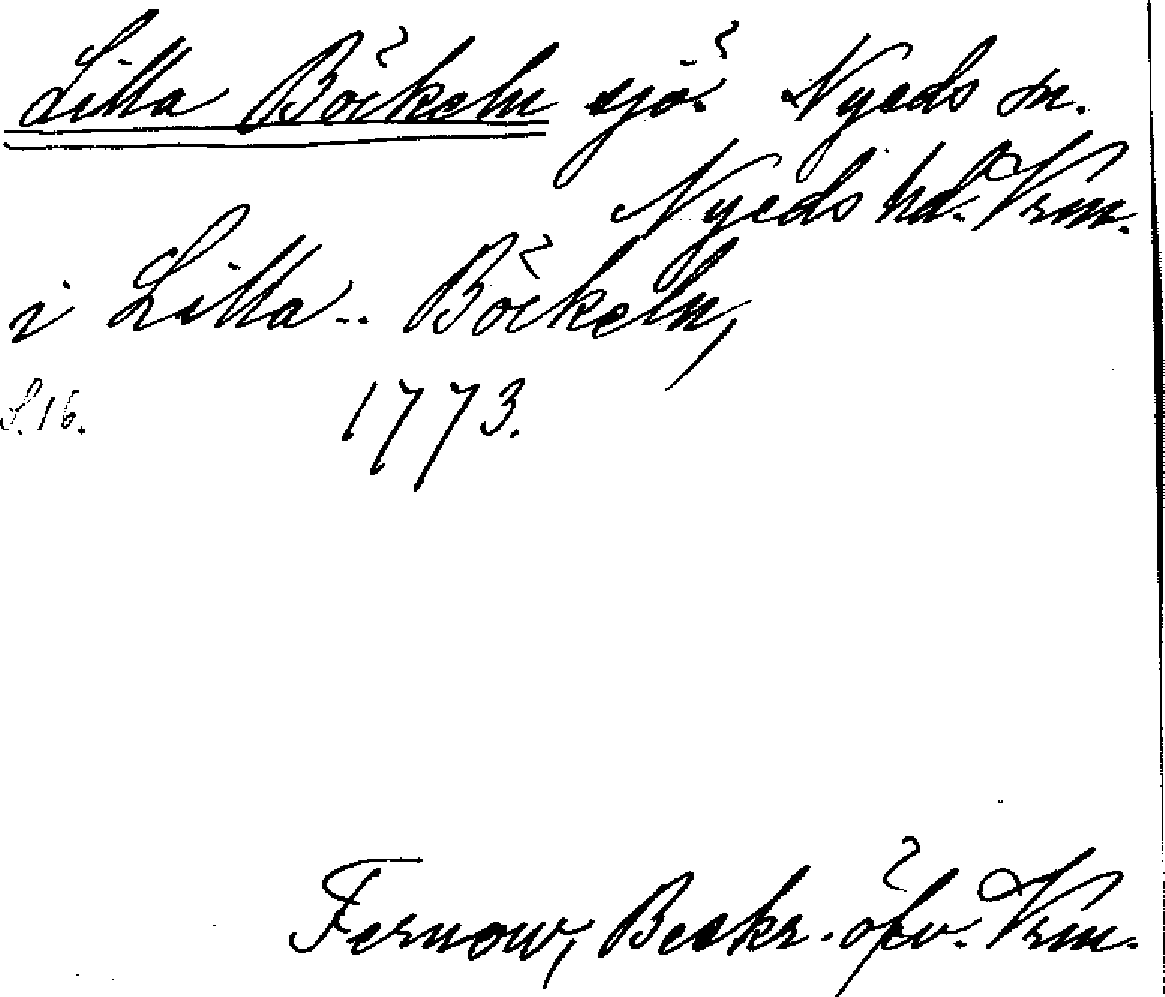 Lilla Böckeln sjö. Nyeds sn.
Nyeds hd. Vrm.
i Lilla .. Böckeln,
S. 16. 1773.
Fernow, Beskr. öfv. Vrm.